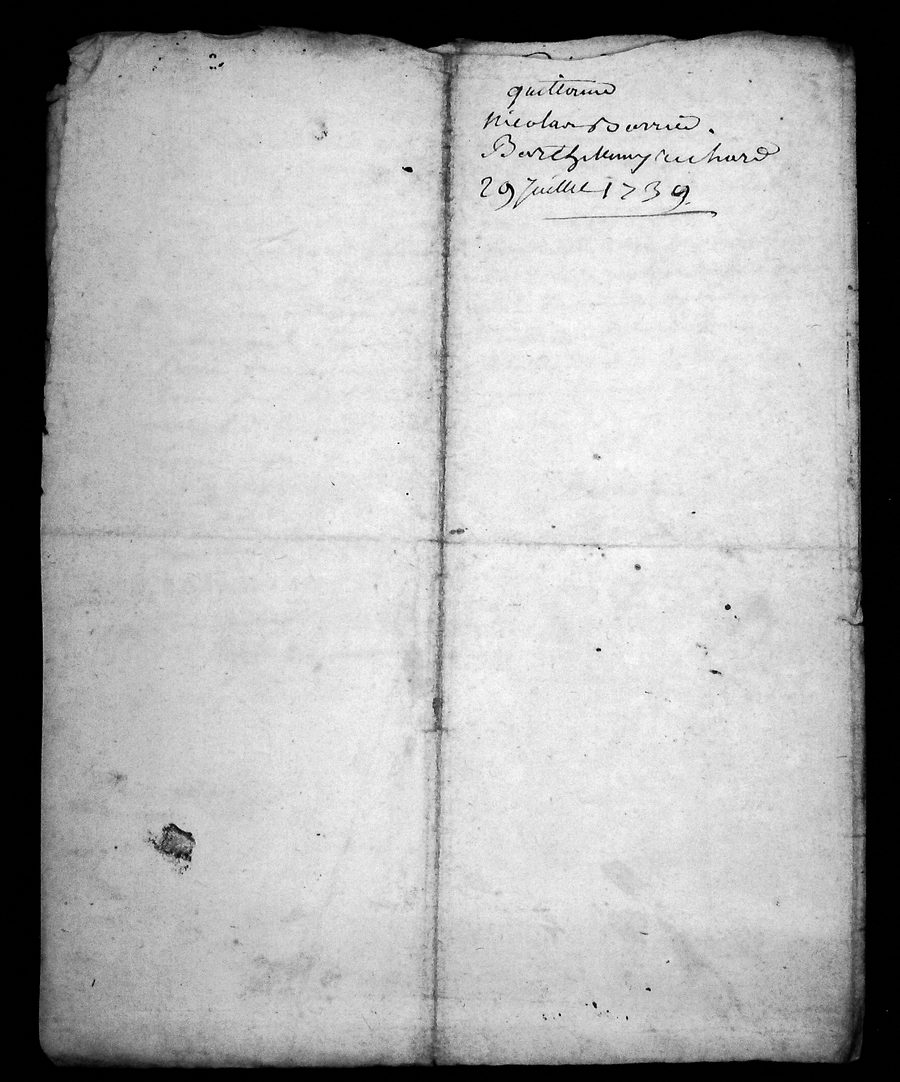 quittance
Nicolas
Barthelemy richard
29 Juillet 1739